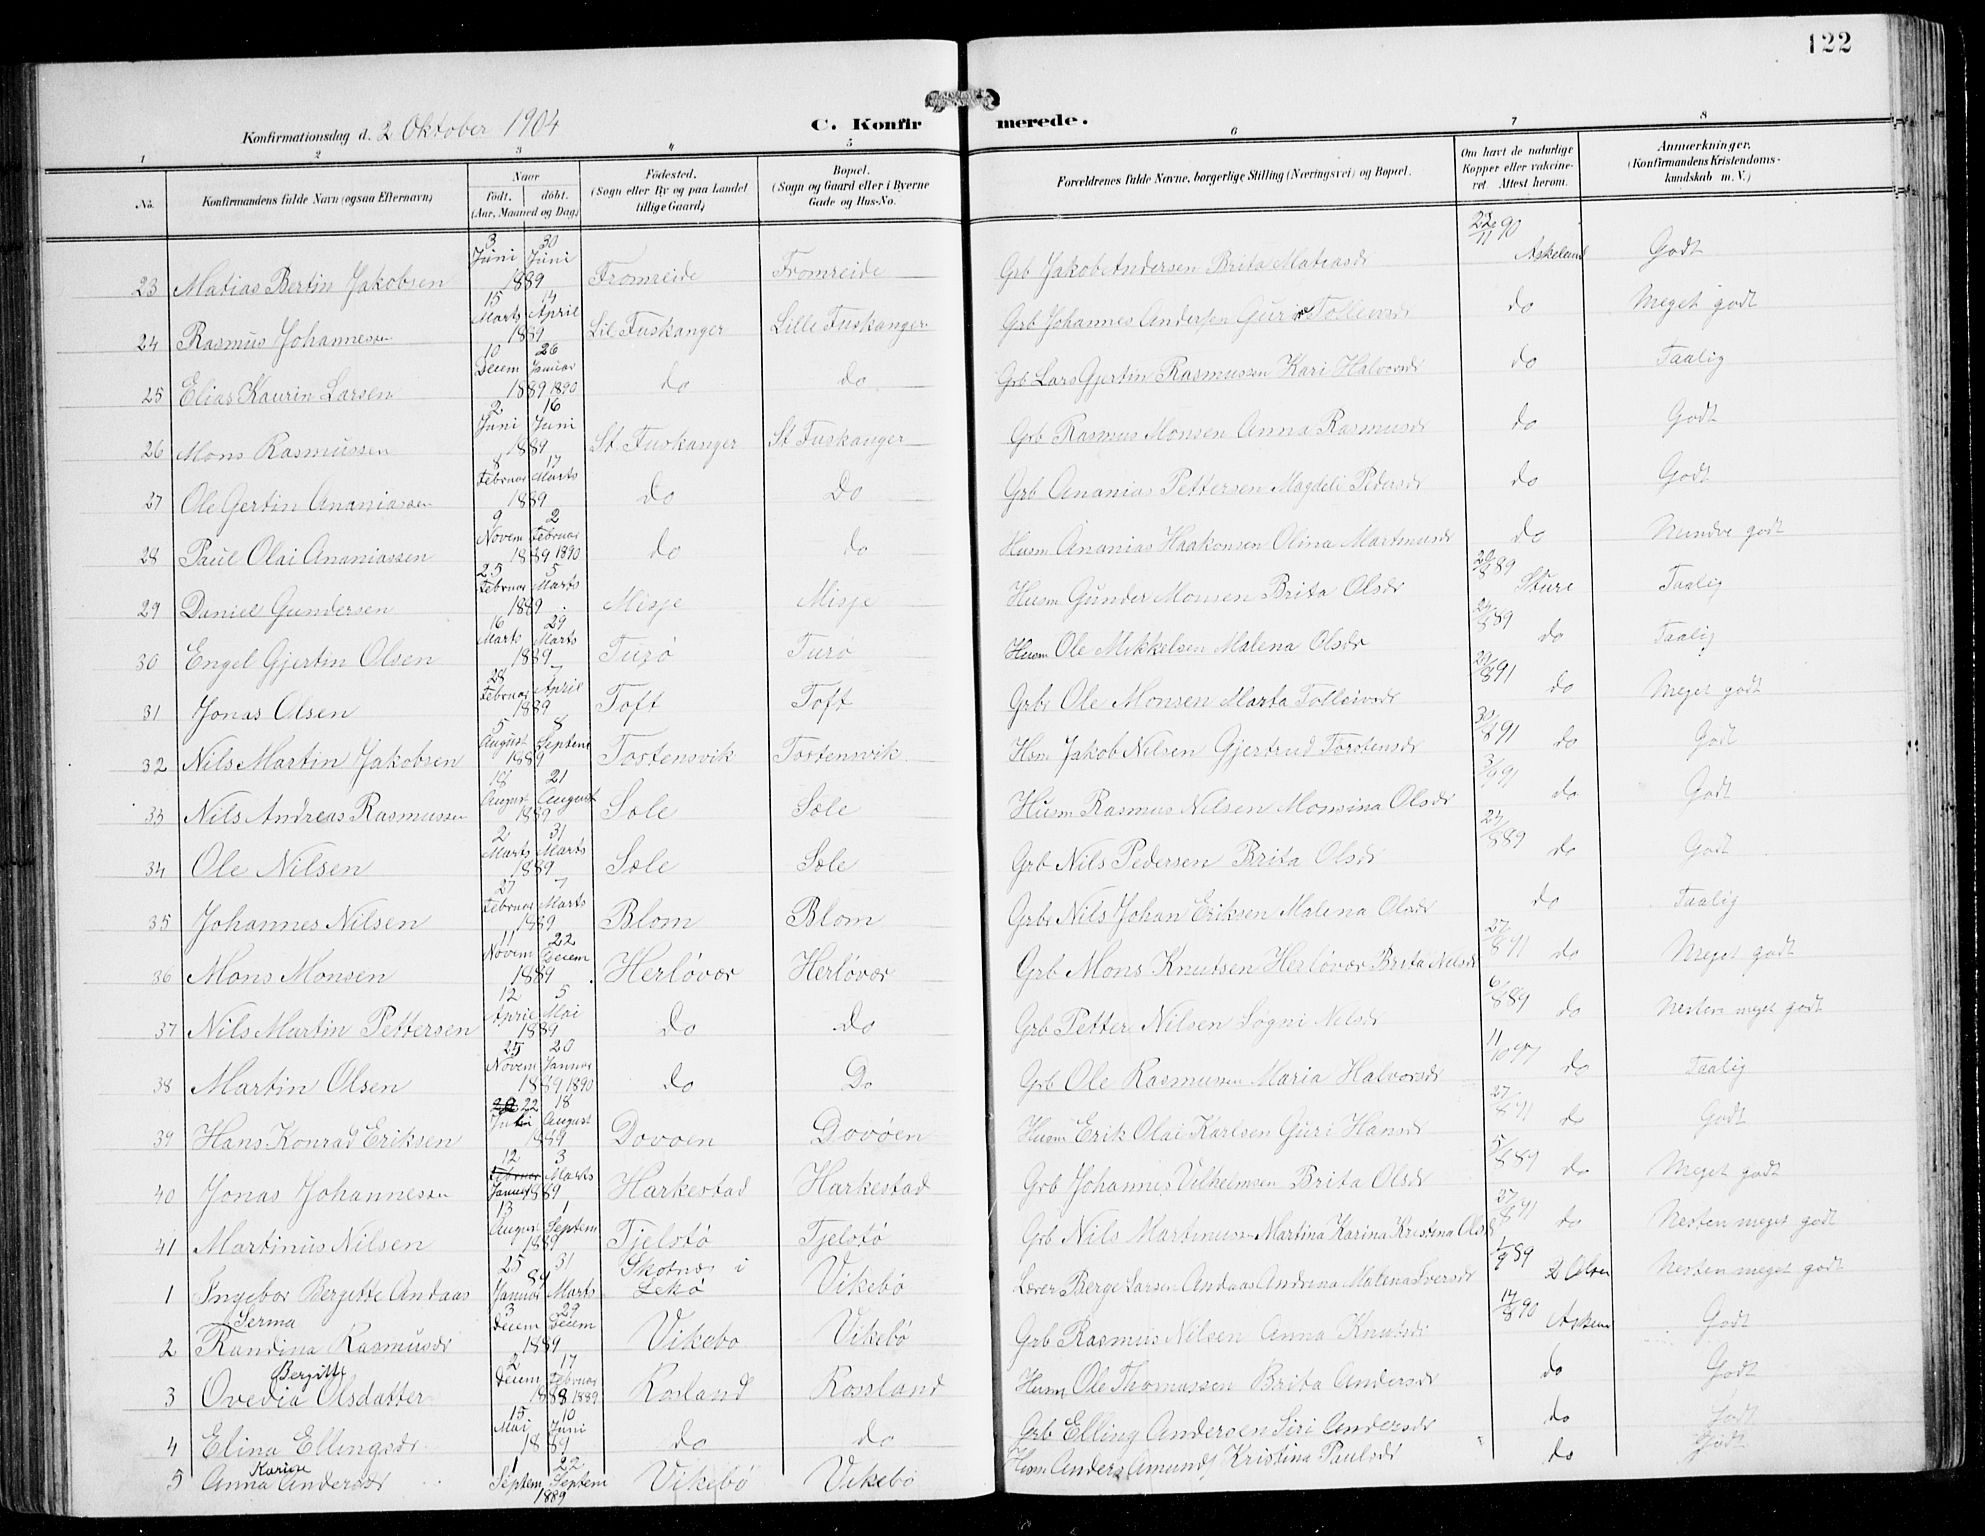 122
Konfirmationsdag d. 2 Oktober 1904
C. Konfirmerede.
1 2 3 4 5 6 7 8
No. Konfirmandens fulde Navn (ogsaa Efternavn) Naar Født. døbt. (Aar, Maaned og Dag) Fødested. (Sogn eller By og paa Landet tillige Gaard) Bopæl. (Sogn og Gaard eller i Byerne Gade og Hus-No. Forældrenes fulde Navne, borgerlige Stilling (Næringsvei) og Bopæl. Om havt de naturlige Kopper eller vakcineret. Attest herom. Anmærkninger. (Konfirmandens Kristendomskundskab m. V.)
23 Matias Bertin Jakobsen 3 Juni 30 Juni 1889 Fromreide Fromreide Grb Jakob Andersen Brita Matiasdr 23/11 90 Askeland Godt
24 Rasmus Johannessen 15 Marts 14 April 1889 Lil Fuskanger Lille Fuskanger Grb Johannes Andersen Guri Tolleivsdr do Meget godt
25 Elias Kaurin Larsen 10 Decem 26 Januar 1889 1890 do do Grb Lars Gjertin Rasmussen Kari Halvorsdr do Taalig
26 Mons Rasmussen 2 Juni 16 Juni 1889 St Fuskanger St Fuskanger Grb Rasmus Monsen Anna Rasmusdr do Godt
27 Ole Gertin Ananiassen 8 Februar 17 Marts 1889 do Do Grb Ananias Pettersen Magdeli Pedersdr do Godt
28 Paul Olai Ananiassen 9 Novem 2 Februar 1889 1890 do do Husm Ananias Haakonsen Olina Martinusdr do Mindre godt
29 Daniel Gundersen 25 Februar 5 Marts 1889 Misje Misje Husm Gunder Monsen Brita Olsdr 29/8 89 Sture Taalig
30 Engel Gjertin Olsen 16 Marts 29 Marts 1889 Turø Turø Husm Ole Mikkelsen Malena Olsdr 29/8 89 do Taalig
31 Jonas Olsen 28 Februar 7 April 1889 Toft Toft Grbr Ole Monsen Marta Tolleivsdr 29/8 91 do Meget godt
32 Nils Martin Jakobsen 5 August 8 Septem 1889 Tostensvik Tostensvik Hsm Jakob Nilsen Gjertrud Torstensdr 31/8 91 do Godt
33 Nils Andreas Rasmussen 18 August 21 August 1889 Sole Sole Husm Rasmus Nilsen Monsina Olsdr 3/9 91 do Godt
34 Ole Nilsen 2 Marts 31 Marts 1889 Sole Sole Grb Nils Pedersen Brita Olsdr 27/8 89 do Godt
35 Johannes Nilsen 27 Februar 7 Marts 1889 Blom Blom Grbr Nils Johan Eriksen Malena Olsdr do Taalig
36 Mons Monsen 11 Novem 22 Decem 1889 Herløvær Herløvær Grb Mons Knutsen Herløvær Brita Nilsdr 27/8 91 do Meget godt
37 Nils Martin Pettersen 12 April 5 Mai 1889 do Do Grb Petter Nilsen Søgni Nilsdr 6/8 89 do Nesten meget godt
38 Martin Olsen 25 Novem 20 Januar 1889 1890 do Do Grb Ole Rasmussen Maria Halvorsdr 11/10 97 do Taalig
39 Hans Konrad Eriksen 22 Juli 18 August 1889 Dovoen Dovøen Husm Erik Olai Karlsen Guri Hansdr 27/8 91 do Godt
40 Jonas Johannessen 12 Januar 3 Marts 1889 Harkestad Harkestad Grb Johannes Vilhelmsen Brita Olsdr 5/8 89 do Meget godt
41 Martinus Nilsen 13 August 1 Septem 1889 Tjelstø Tjelstø Grb Nils Martinusen Martina Karina Kristina Olsdr 27/8 91 do Nesten meget godt
1 Ingebor Bergitte Andaas 25 Januar 31 Marts 89 Skotnæs i Vikebø Lærer Berge Larsen Andaas Andrina Malena Iversdr 1/9 89 Olsen Nesten meget godt
2 Randina Serma Rasmusdr 3 Decem 29 Decem 1889 Vikebo Vikebø Grb Rasmus Nilsen Anna Knutsdr 17/8 90 Godt
3 Ovedia Bergitte Olsdatter 2 Decem 17 Februar 1888 1889 Rosland Rossland Husm Ole Thomassen Brita Andersdr do Godt
4 Elina Ellingsdr 15 Mai 10 Juni 1889 do do Grb Elling Andersen Siri Andersdr do Godt
5 Anna Karine Andersdr 1 Septem 22 Septem 1889 Vikebø Vikebø Hsm Anders Amunds Kristina Paulsdr do Godt